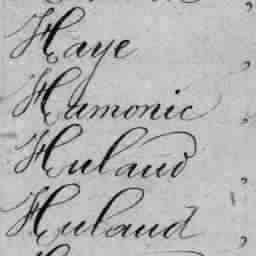 Haye
Hamonic
Hulaud
Hulaud